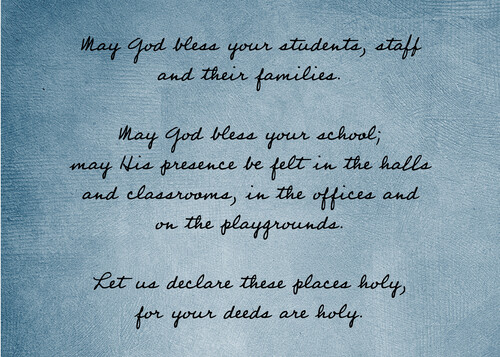 May God bless your students, staff
and their families.
May God bless your school;
may His presence be felt in the halls
and classrooms, in the offices and
on the playgrounds.
Let us declare these places holy,
for your deeds are holy.